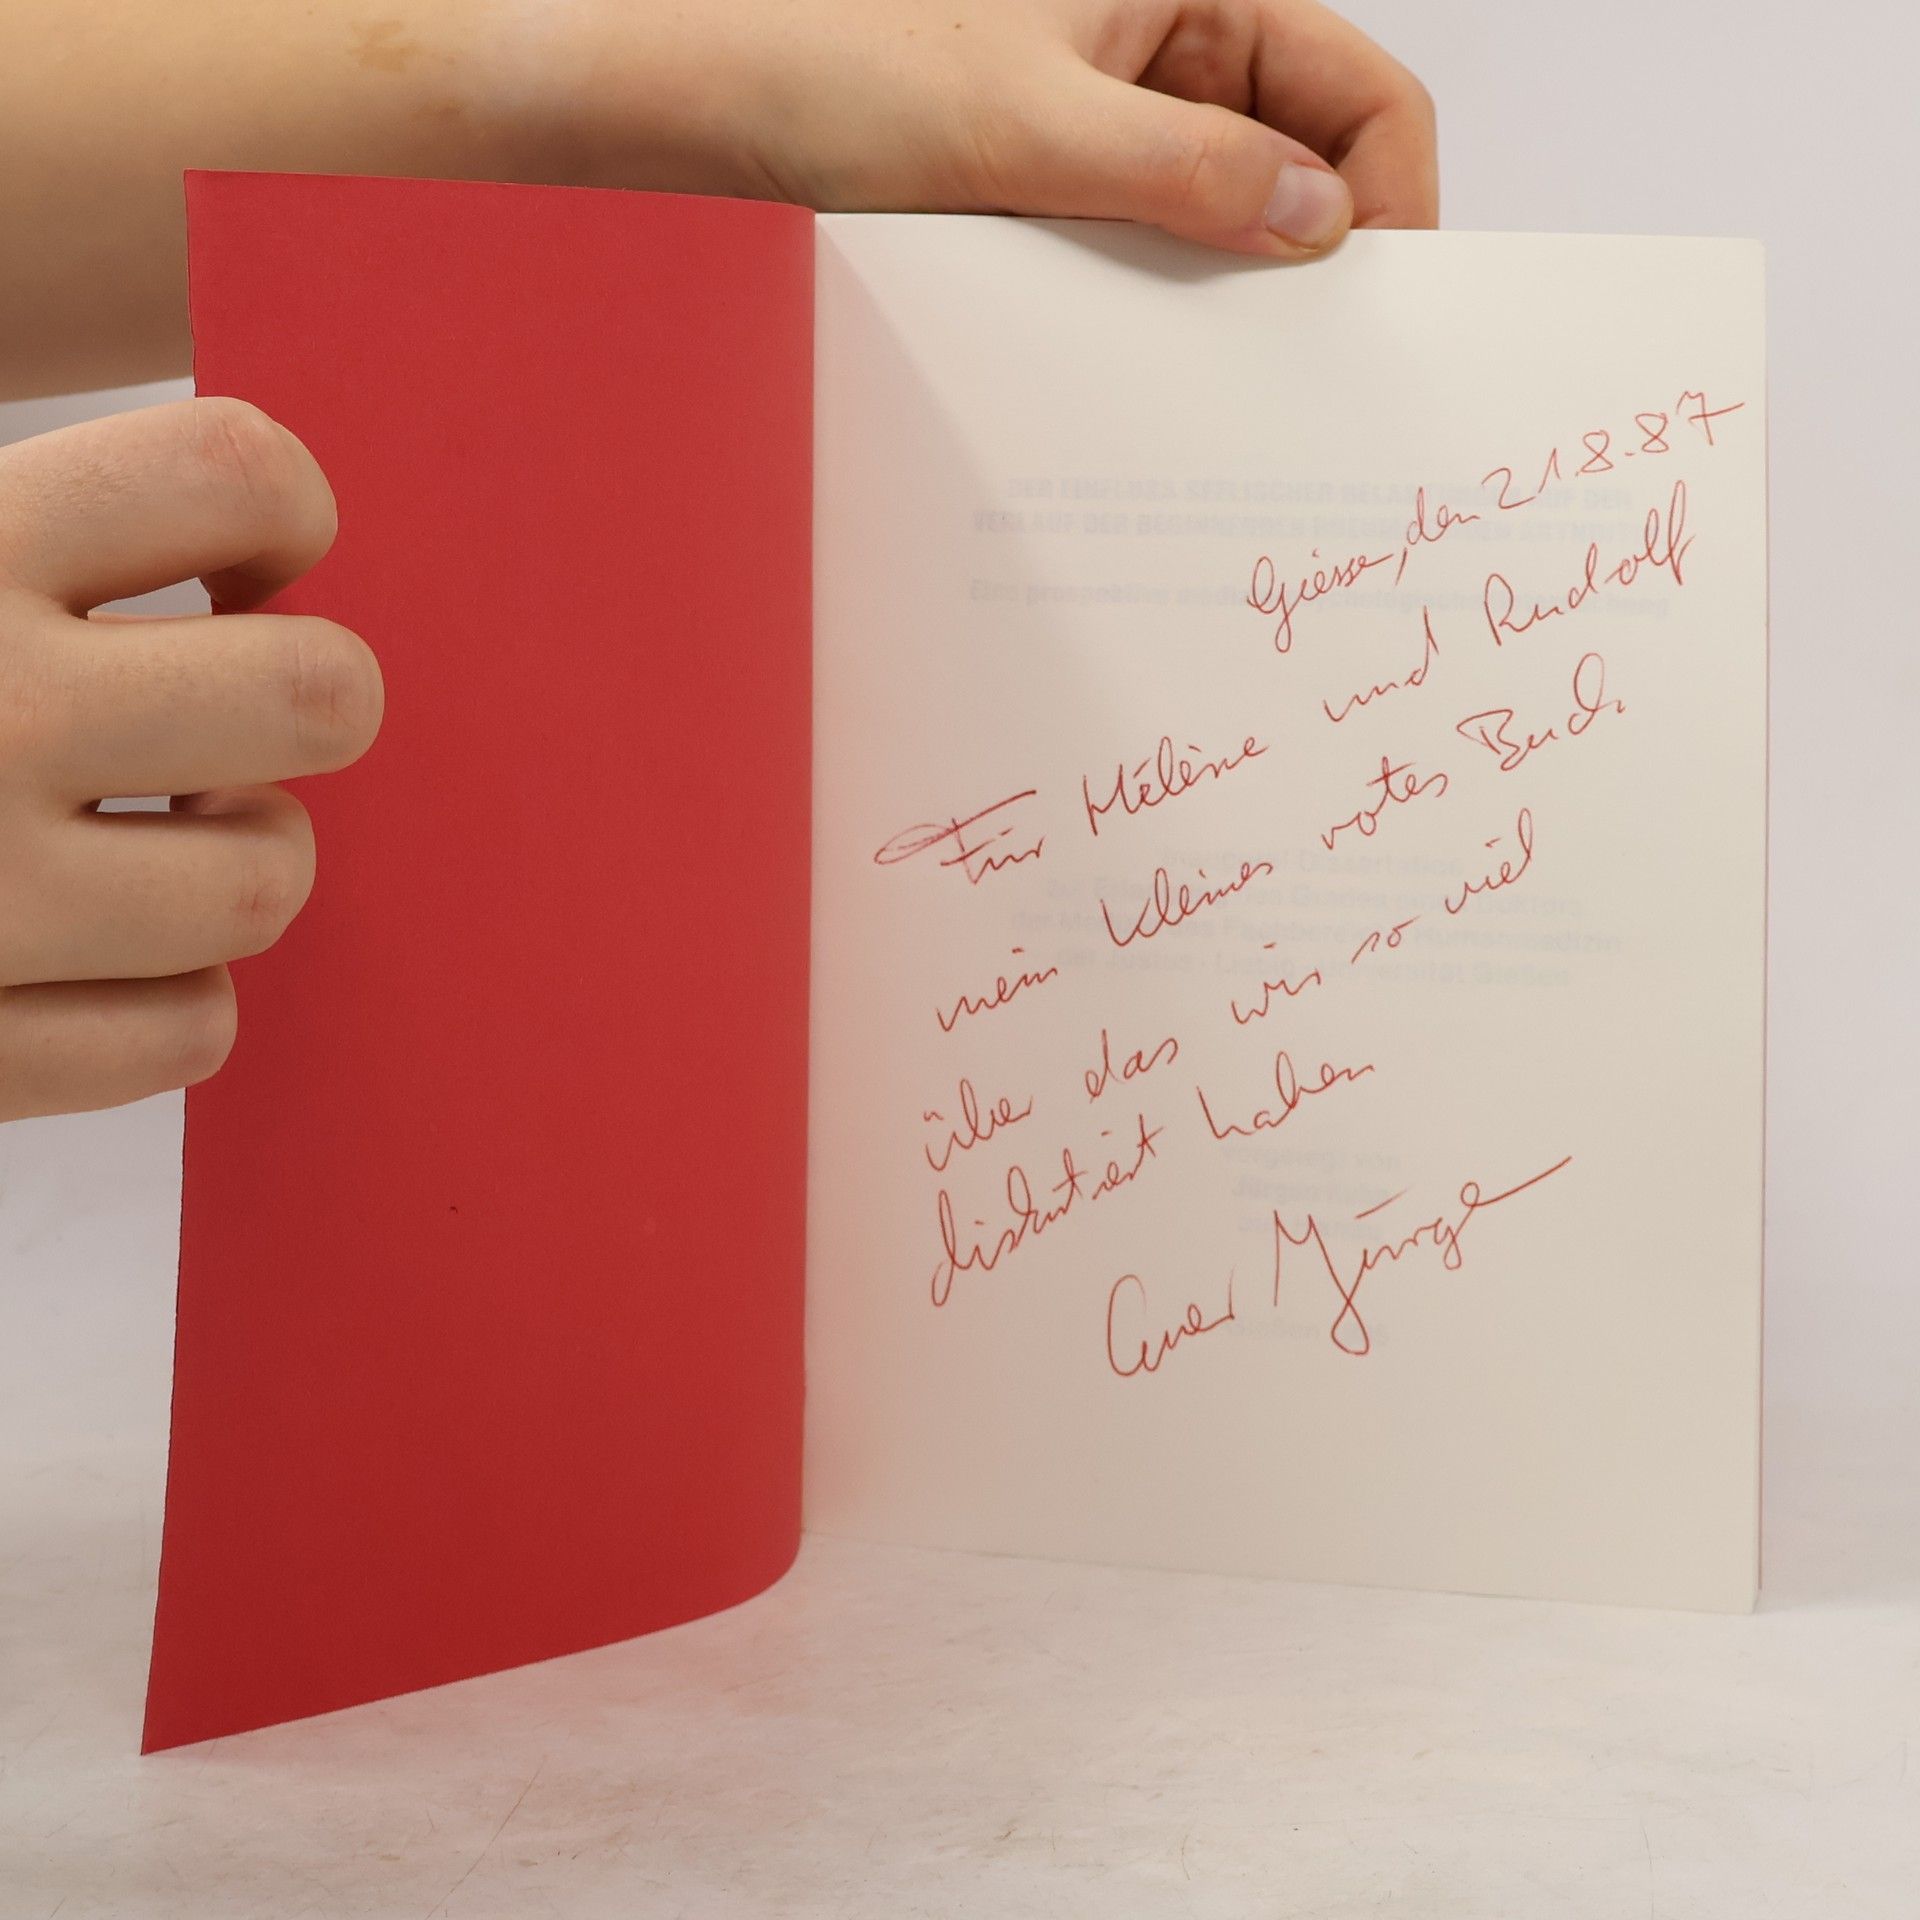 Giessen, den 21.8.87
Für Hélène und Rudolf
mein kleines rotes Buch
über das wir so viel
diskutiert haben
Euer Jürgen
DER EINFLUSS SEELISCHER BELASTUNGEN AUF DEN
VERLAUF DER BEGINNENDEN RHEUMATOIDEN ARTHRITIS
Eine prospektive medizinpsychologische Untersuchung
Inaugural Dissertation
zur Erlangung des Grades eines Doktors
der Medizin des Fachbereichs Humanmedizin
der Justus-Liebig-Universität Gießen
vorgelegt von
Jürgen
Gießen